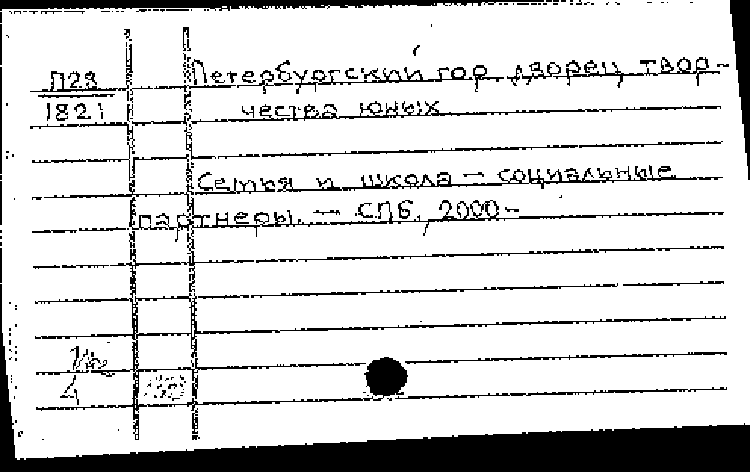 П28 Петербургский гор. дворец твор-
1821 чества юных
Семья и школа — социальные
партнеры. — СПб., 2000-